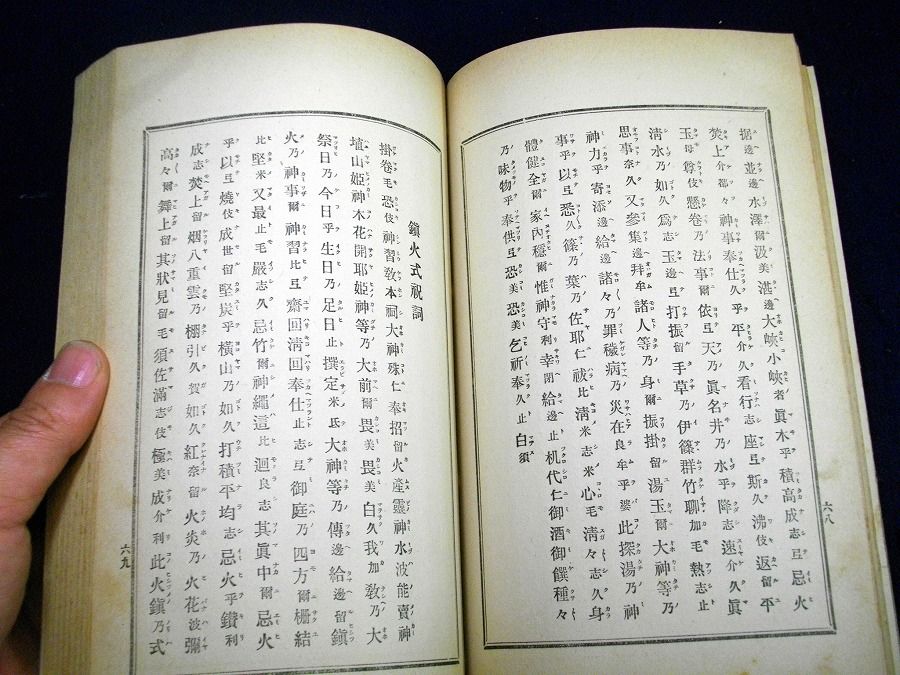 据邊並邊水澤爾汲美湛邊大峽小峽者眞木乎積高成志弖忌火
焚上介都々神事奉仕久乎平介久看行志座弖斯久沸伎返留平
玉母尊伎懸卷乃法事爾依弖天乃眞名井乃水乎降志速介久眞
淸水乃如久爲志玉邊弖打振留手草乃伊篠群竹聊加毛熱志止
思事奈久又參集邊拜牟諸人等乃身爾振掛留湯玉爾大神等乃
神力乎寄添邊給邊諸々乃罪穢病乃災在良牟乎婆此探湯乃神
事乎以弖悉久篠乃葉乃佐耶仁祓比淸米志米心毛淸々志久身
體健全爾家內穩爾惟神守利幸閇給邊止机代仁御酒御饌種々
乃味物乎奉供弖恐美恐美乞祈奉久止白須
六八
鎭火式祝詞
掛卷毛恐伎神習敎本祠大神殊仁奉招留火產靈神水波能賣神
埴山姬神木花開耶姬神等乃大前爾畏美畏美白久我加敎乃大
祭日乃今日乎生日乃足日止撰定米氐大神等乃傳邊給邊留鎭
火乃神事爾神習比弖齋回淸回奉仕止志弖御庭乃四方爾柵結
比堅米又最止毛嚴志久忌竹爾神繩這比迴良志其眞中爾忌火
乎以弖燒伎成世留堅炭乎橫山乃如久打積平均志忌火乎鑽利
成志焚上留烟八重雲乃棚引久賀如久紅奈留火炎乃火花波彌
高々爾舞上留其狀見留毛須佐滿志伎極美成介利此火鎭乃式
六九